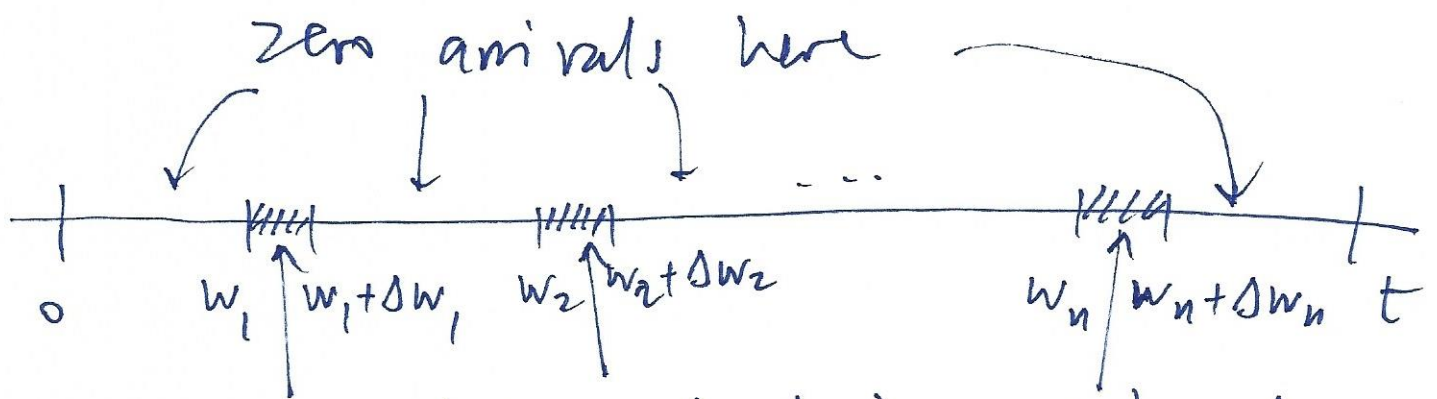 zero arrivals here
. . . .
0 w₁ w₁+Δw₁ w₂ w₂+Δw₂ wₙ wₙ+Δwₙ t